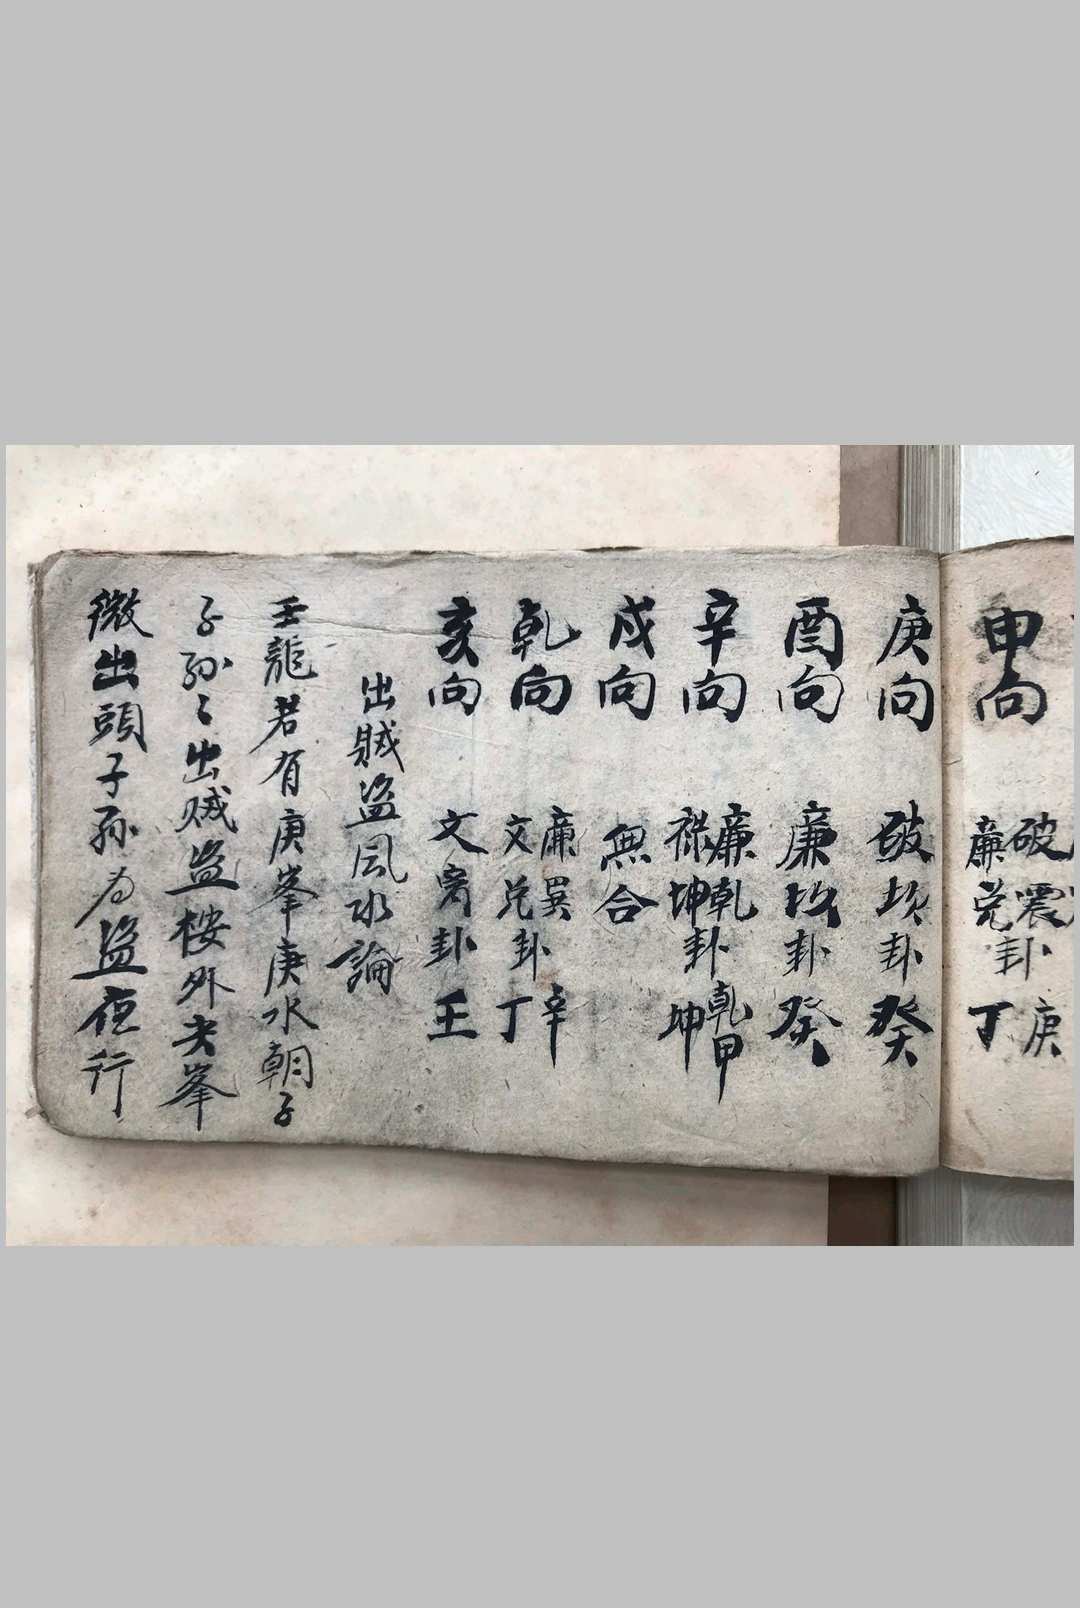 申向 破震卦庚 廉兌卦丁
庚向 破坎卦癸
酉向 廉坎卦癸
辛向 廉乾卦乾甲 祿坤卦坤
戌向 無合
乾向 廉巽卦辛 文兌卦丁
亥向 文离卦壬
出賊盜風水論
壬龍若有庚峯庚水朝子
子孫〻出賊盜楼外夫峯
微出頭子孫为盜夜行